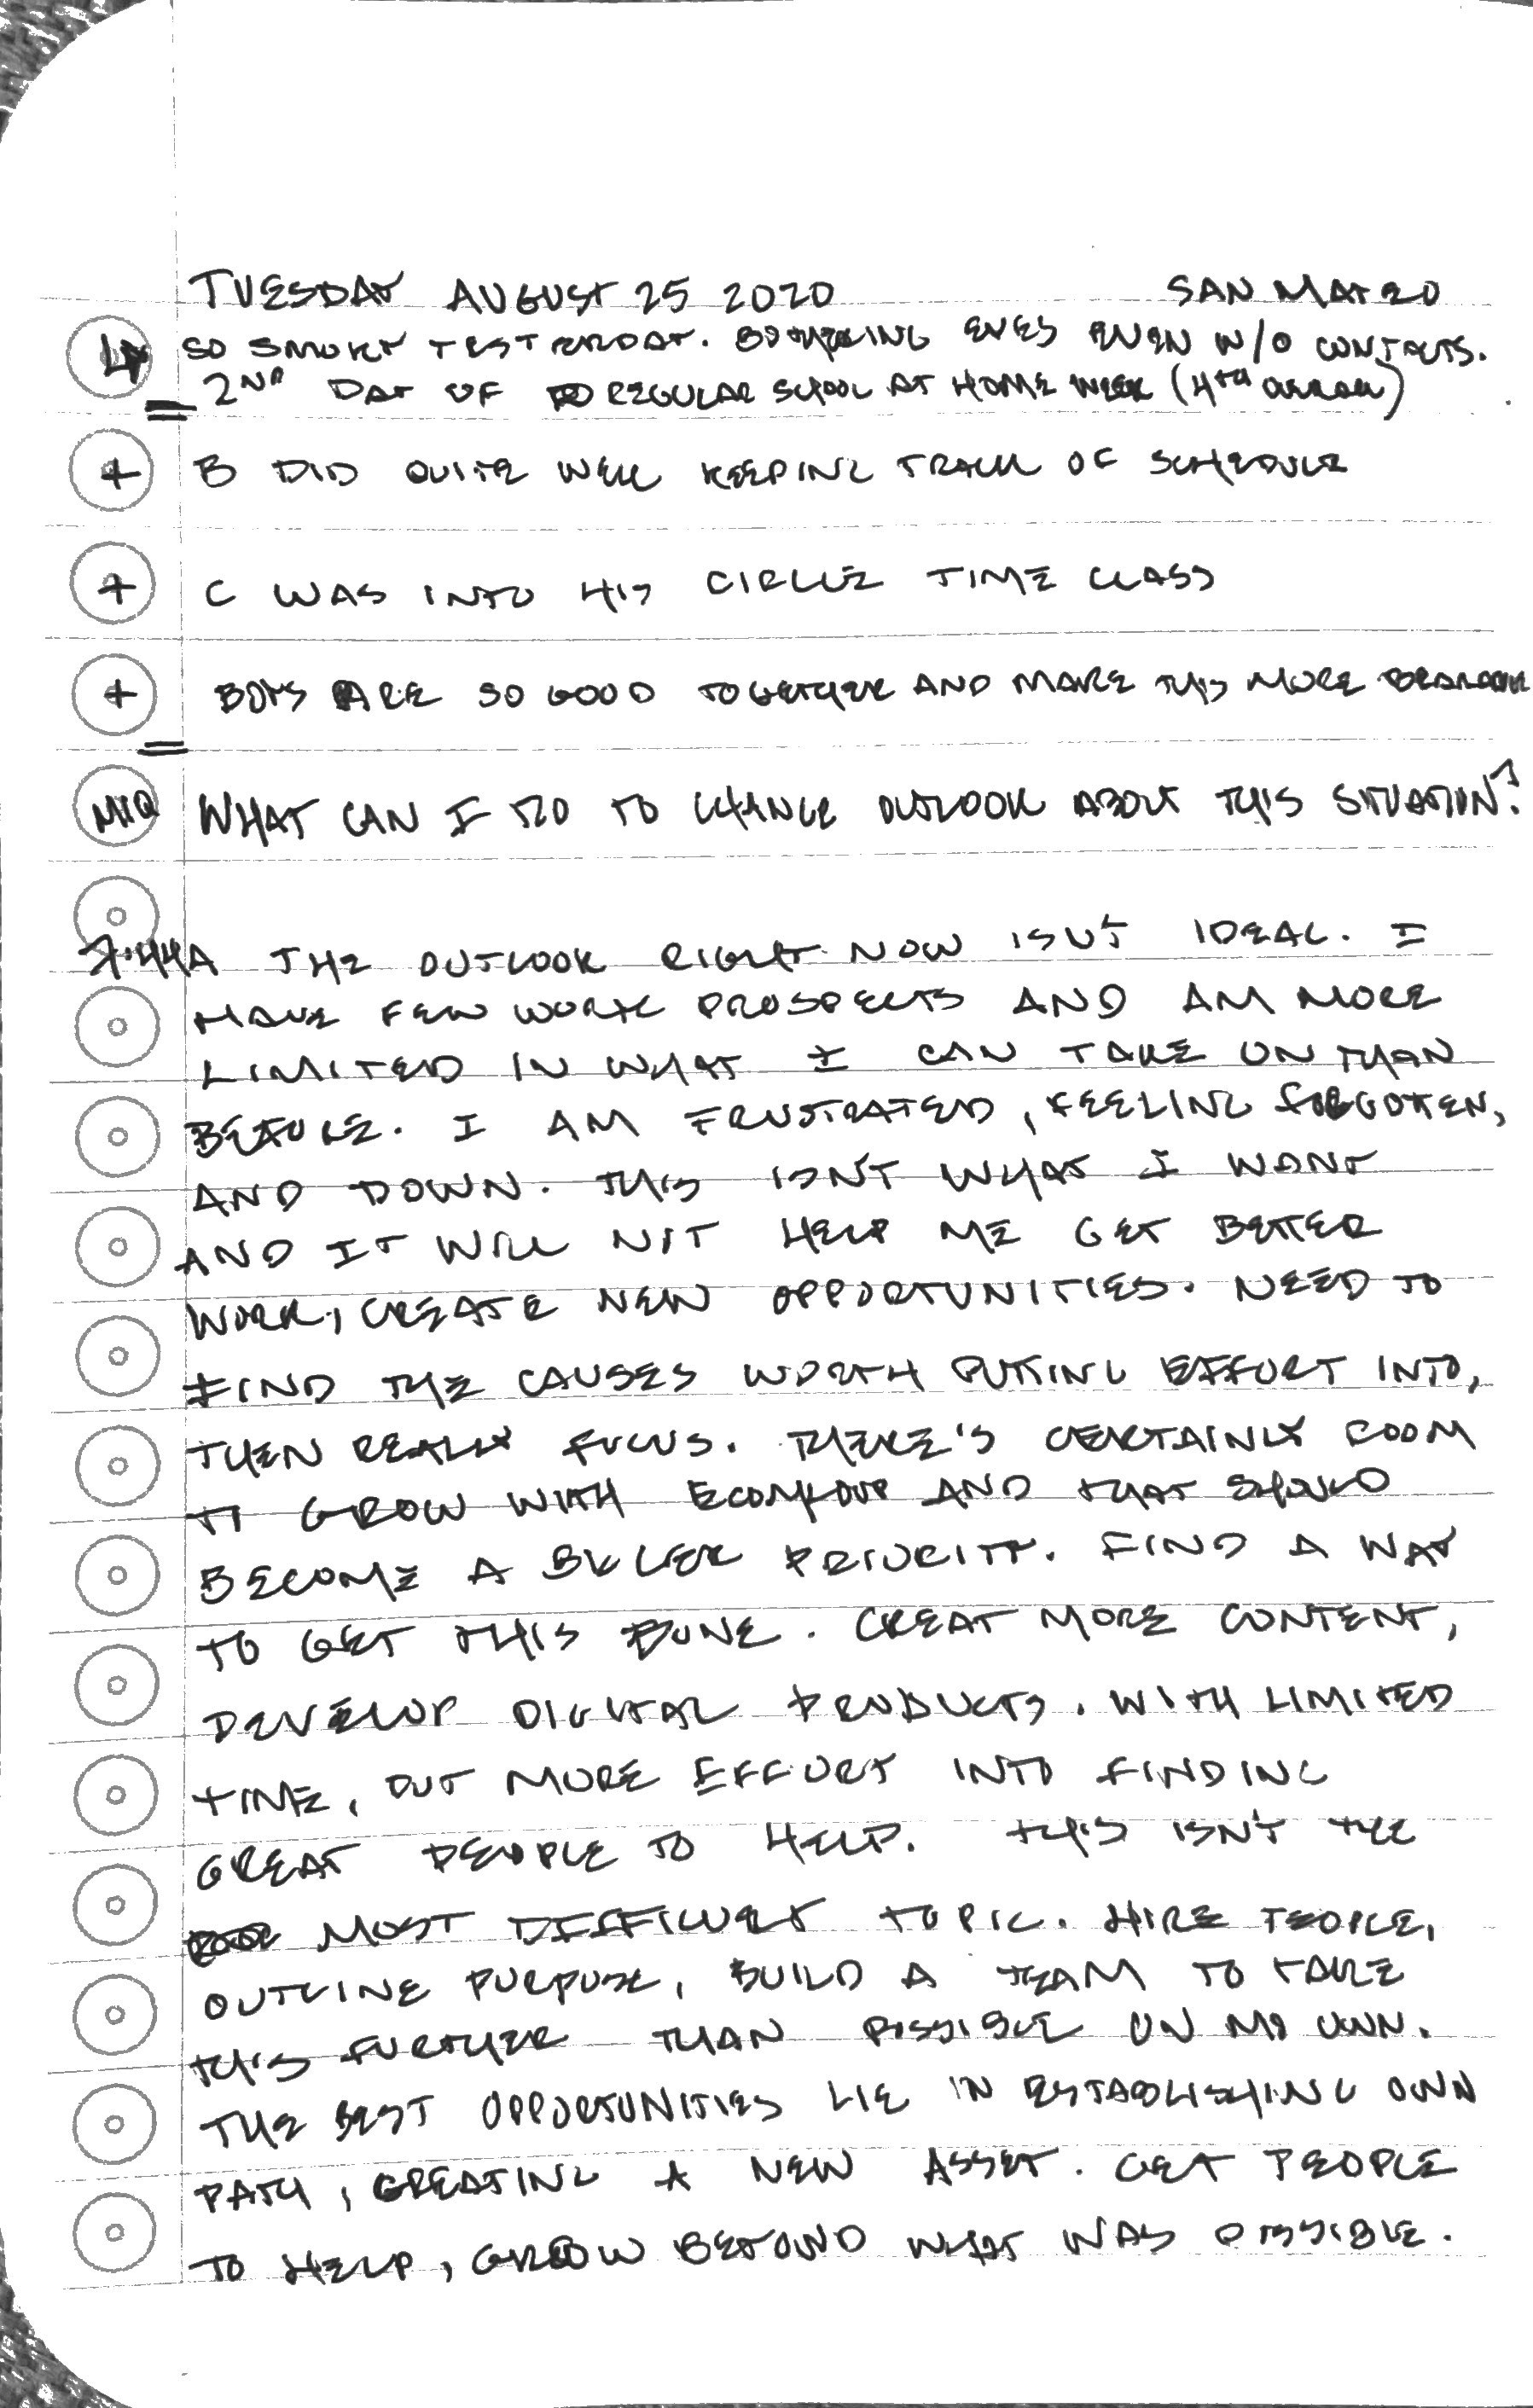 TUESDAY AUGUST 25 2020 SAN MATEO
SO SMOKY YESTERDAY. BOTHERING EYES EVEN W/O CONTACTS.
2ND DAY OF REGULAR SCHOOL AT HOME WEEK (4TH OVERALL)
+ B DID QUITE WELL KEEPING TRACK OF SCHEDULE
+ C WAS INTO HIS CIRCLE TIME CLASS
+ BOYS ARE SO GOOD TOGETHER AND MAKE THIS MORE BEARABLE
MIQ WHAT CAN I DO TO CHANGE OUTLOOK ABOUT THIS SITUATION?
7:44A THE OUTLOOK RIGHT NOW ISN'T IDEAL. I
HAVE FEW WORK PROSPECTS AND AM MORE
LIMITED IN WHAT I CAN TAKE ON THAN
BEFORE. I AM FRUSTRATED, FEELING FORGOTTEN,
AND DOWN. THIS ISN'T WHAT I WANT
AND IT WILL NOT HELP ME GET BETTER
WORK, CREATE NEW OPPORTUNITIES. NEED TO
FIND THE CAUSES WORTH PUTTING EFFORT INTO,
THEN REALLY FOCUS. THERE'S CERTAINLY ROOM
TO GROW WITH AND THAT SHOULD
BECOME A BIGGER PRIORITY. FIND A WAY
TO GET THIS DONE. CREAT MORE CONTENT,
DEVELOP DIGITAL PRODUCTS. WITH LIMITED
TIME, PUT MORE EFFORT INTO FINDING
GREAT PEOPLE TO HELP. THIS ISN'T THE
MOST DIFFICULT TOPIC. HIRE PEOPLE,
OUTLINE PURPOSE, BUILD A TEAM TO TAKE
THIS FURTHER THAN POSSIBLE ON MY OWN.
THE BEST OPPORTUNITIES LIE IN ESTABLISHING OWN
PATH, CREATING A NEW ASSET. GET PEOPLE
TO HELP, GROW BEYOND WHAT WAS POSSIBLE.